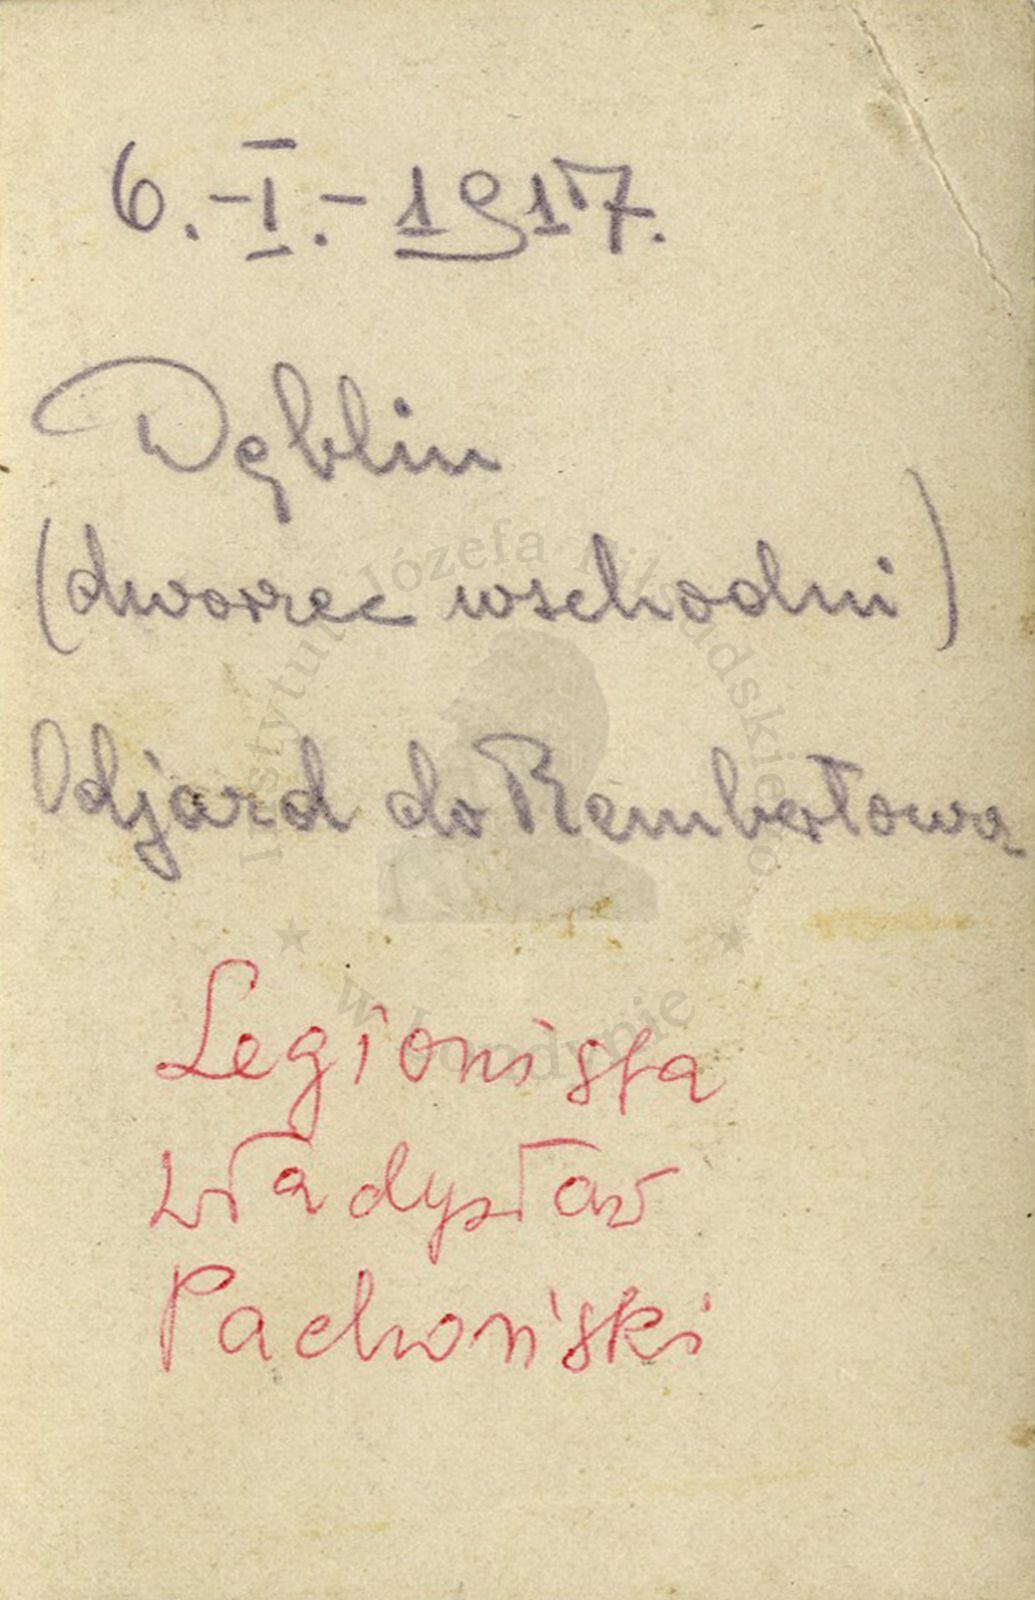 6.-I.-1917.
Dęblin
(dworzec wschodni)
Odjazd do Rembertowa
Legionista
Władysław
Pachoński
Instytut Józefa Piłsudskiego
w Londynie